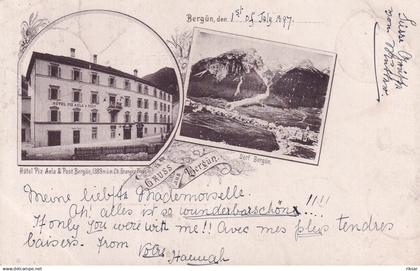 Bergün, den 1st of July 1897.
Süsse Grüsse
von
HÔTEL PIZ AELA & POST
Hôtel Piz Aela & Post Bergün, 1389 m ü. M.
Dorf Bergün.
GRUSS aus Bergün.
Meine liebste Mademoiselle.
Ah! alles ist so wunderbarschön !!!!
If only you were with me!! Avec mes plus tendres
baisers. from
Hannah